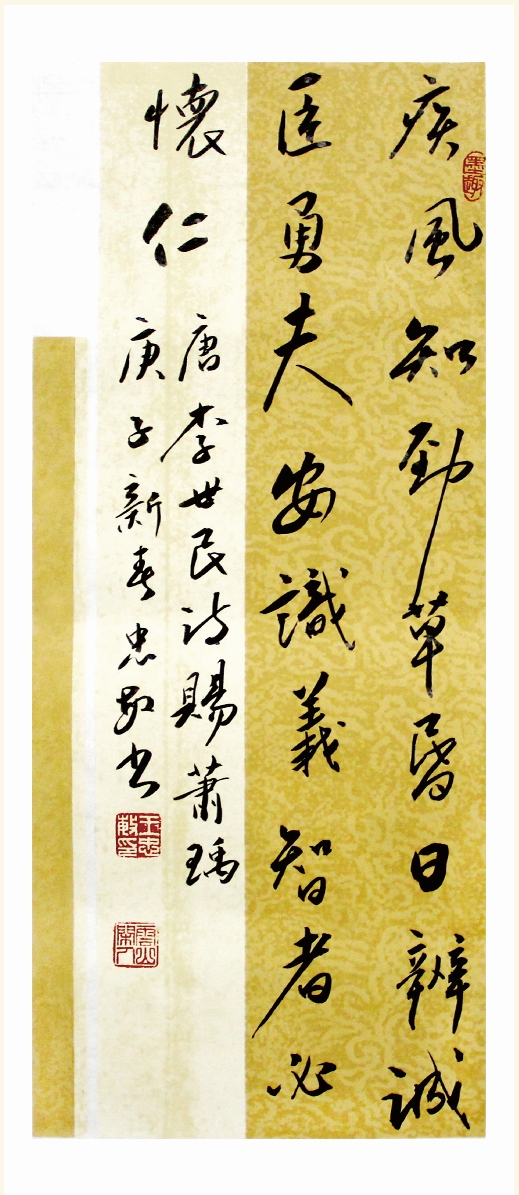 疾風知勁草昏日辨誠
臣勇夫安識義智者必
懷仁
唐李世民詩賜蕭瑀
庚子新春忠敏书